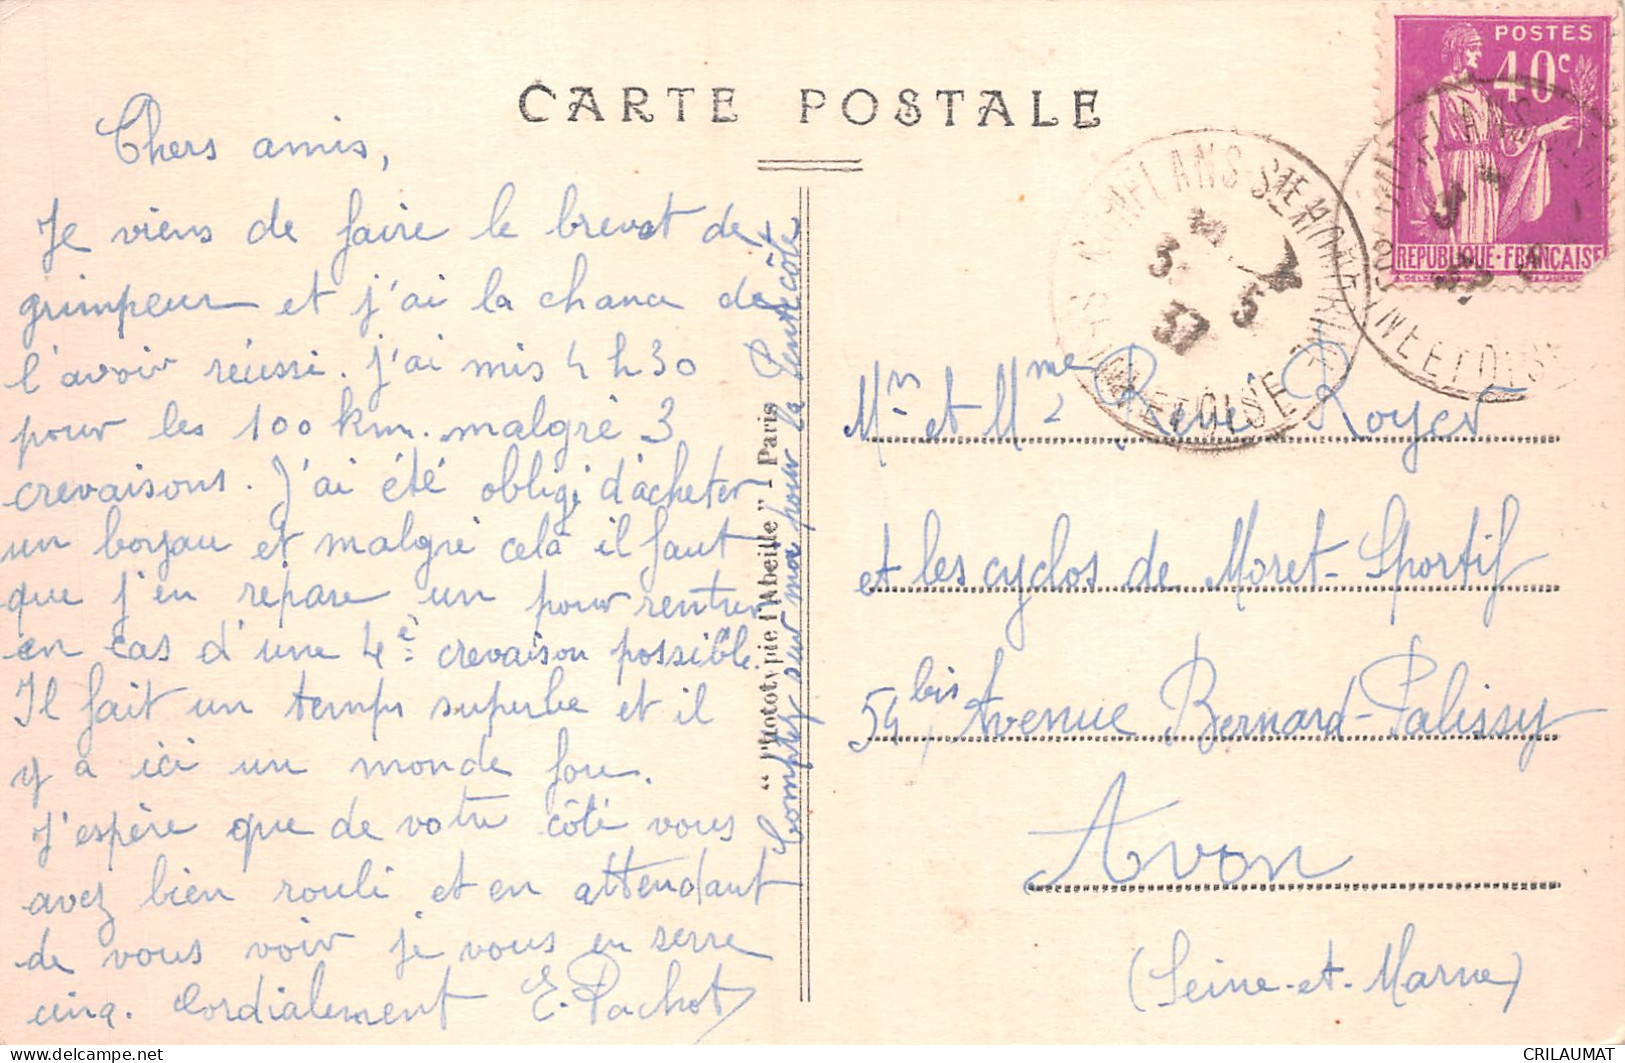 CARTE POSTALE
Chers amis,
Je viens de faire le brevet de
grimpeur et j'ai la chance de
l'avoir réussi. j'ai mis 4 h 30
pour les 100 km. malgré 3
crevaisons. J'ai été obligé d'acheter
un boyau et malgré celà il faut
que j'en répare un pour rentrer
en cas d'une 4è: crevaison possible.
Il fait un temps superbe et il
y a ici un monde fou.
J'espère que de votre côté vous
avez bien roulé et en attendant
de vous voir je vous en serre
cinq. Cordialement E. Pachot
Comptez sur ma pour la Pentecôte
“ Phototypie l'Abeille ” - Paris
POSTES
40c
REPUBLIQUE·FRANÇAISE
CONFLANS-STE HONORINE
SEINE ET OISE
37
Mr et Mme René Royer
et les cyclos de Moret-Sportif
54bis, Avenue Bernard-Palissy
Avon
(Seine-et-Marne)
CRILAUMAT